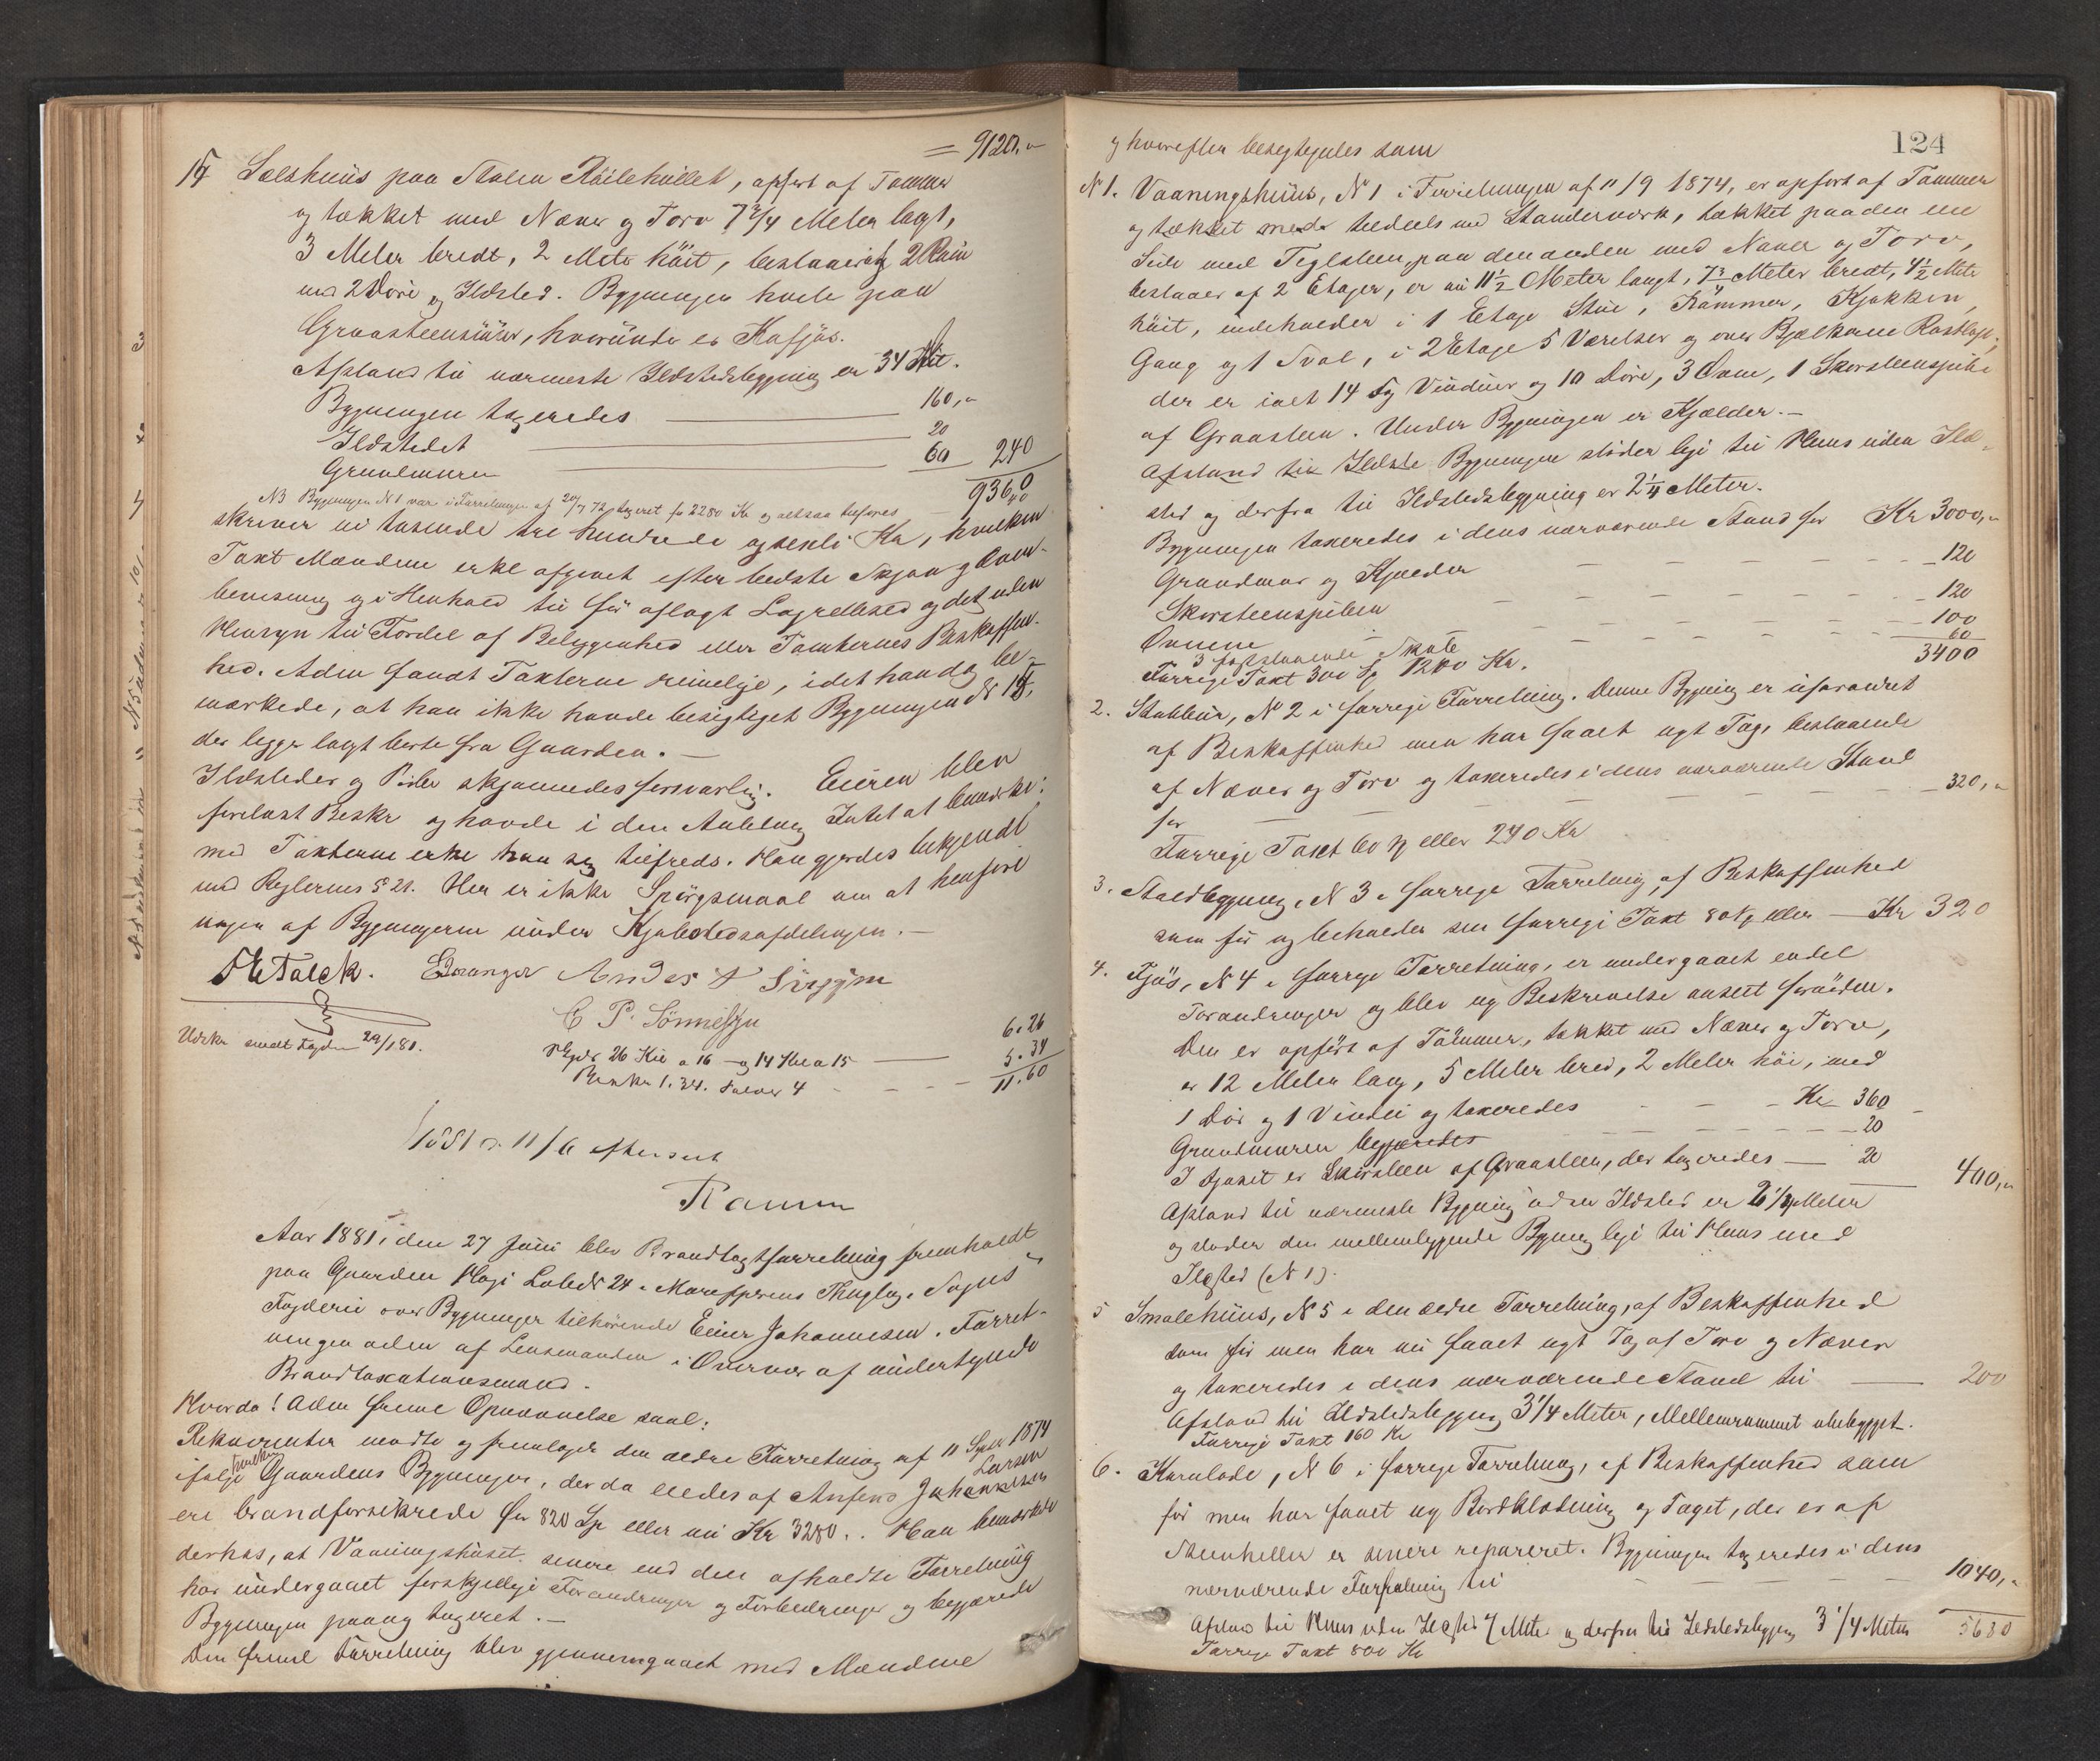 = 9120,"
15 Sælshuus paa Stølen, opført af Tømmer
og tækket med Næver og Torv 7 3/4 Meter langt,
3 Meter bredt, 2 Meter höit, bestaaende af 2 Rum
med 2 Döre og Ildsted. Bygningen hviler paa
Graasteensmuur, hvorunder er Kufjös.
Afstand til nærmeste Ildstedsbygning er 34 Met.
Bygningen taxeredes 160,"
Ildstedet 20
Grundmuren 60 240
9360
NB Bygningen N 1 var i Forretningen af 20/7 72 taxeret for 2280 Kr og altsaa
skriver ni tusende tre hundrede og sexti Kr, hvilken
Taxt Mændene erkl afgivet efter bedste Skjøn og Over-
bevisning og i Henhold til för aflagt Lagrettesed og det uden
Hensyn til Fordel af Beliggenhed eller Tomternes Beskaffen-
hed. Adm fandt Taxterne rimelige, idet han dog be-
mærkede, at han ikke havde besigtiget Bygningen N 15,
der ligger langt borte fra Gaarden. —
Ildsteder og Piber skjønnedes forsvarlig. Eieren blev
forelæst Beskr og havde i den Anledning Intet at bemærke:
med Taxterne erkl han sig tilfreds. Han gjordes bekjendt
med Reglernes § 21. Her er ikke Spörgsmaal om at henföre
nogen af Bygningerne under Kjøbstedsafdelingen. —
Falck. Anders
C P. Sønnesyn
Udskr sendt Fogden 29/1 81.
26 Kil a 16 — og 14 Kil a 15 6.26
Beskr 1.34. 4 5.34
11.60
1881 d. 11/6 efterseet
Ramm
Aar 1881, den 27 Juni blev Brandtaxtforretning fremholdt
paa Gaarden Løbe N 24 i Marifjærens Thinglag, Sogns
Fogderi over Bygninger tilhörende Einer Johannesen. Forret-
ningen adm af Lensmanden i Overvær af undertegnede
Brandtaxationsmænd.
Hvorda! Adm freml Opnævnelse saal:
Rekvirenten mødte og fremlagde den ældre Forretning af 11 Septr 1874
ifølge hvilken Gaardens Bygninger, der da eiedes af Anfind Johannesen Larsen
ere brandforsikrede for 820 Sp eller nu Kr 3280.. Han bemærkede
derhos, at Vaaningshuset senere end den afholdte Forretning
har undergaaet forskjellige Forandringer og Forbedringer og begjærede
Bygningen paany taxeret. —
Den fremL Forretning blev gjennemgaaet med Mændene
124
og hvorefter besigtigedes som
N 1. Vaaningshuus, N 1 i Forretningen af 11/9 1874, er opført af Tømmer
og tækket med tildeels med Standerværk, tækket paa den ene
Side med Teglsteen, paa den anden med Næver og Torv,
bestaaer af 2 Etager, er nu 11 1/2 Meter langt, 7 3/4 Meter bredt, 4 1/2 Mete
höit, indeholder i 1 Etage Stue, Kammer, Kjøkken
Gang og 1 Sval, i 2 Etage 5 Værelser og over Bjælkerne
der er ialt 14 Fag Vinduer og 10 Döre, 3 Ovne, 1 Skorsteenspibe
af Graasteen. Under Bygningen er Kjælder. —
Afstand til Bygningen støder lige til Huus uden Ild-
sted og derfra til Ildstedsbygning er 2 1/4 Meter.
Bygningen taxeredes i dens nærværende Stand for Kr 3000,"
Grundmur og Kjælder 120
Skorsteenspiben 120
Ovnene 100
3 faststaaende Skabe 60
Forrige Taxt 300 Sp 1200 Kr. 3400
2. Stabbur, N 2 i forrige Forretning. Denne Bygning er uforandret
af Beskaffenhed men har faaet nyt Tag, bestaaende
af Næver og Torv og taxeredes i dens nærværende Stand
for 320,"
Forrige Taxt 60 Sp eller 240 Kr
3. Staldbygning, N 3 i forrige Forretning, af Beskaffenhed
som för og beholder sin forrige Taxt 80 Sp eller — Kr 320
4. Fjös, N 4 i forrige Forretning, er undergaaet endel
Forandringer og blev ny Beskrivelse anseet fornöden.
Den er opført af Tömmer, tækket med Næver og Torv,
er 12 Meter lang, 5 Meter bred, 2 Meter höi, med
1 Dör og 1 Vindu og taxeredes Kr 360
Grundmuren begjæredes 20
I Fjøset er Skorsteen af Graasteen, der taxeredes — 20 400,"
Afstand til nærmeste Bygning uden Ildsted er 2 1/2 Meter
og støder den mellemliggende Bygning lige til Huus med
Ildsted (N 1).
5 Smalehuus, N 5 i den ældre Forretning, af Beskaffenhed
som för men har nu faaet nyt Tag af Torv og Næver
og taxeredes i dens nærværende Stand til — 200
Afstand til Ildstedsbygning 3 1/4 Meter, Mellemrummet ubebygget.
Forrige Taxt 160 Kr
6. Kornlade, N 6 i forrige Forretning, af Beskaffenhed som
för men har faaet ny Bordklædning og Taget, der er af
Steenheller er senere repareret. Bygningen taxeredes i dens
nærværende Forfatning til 1040,"
Afstand til Huus uden Ildsted 7 Meter og derfra til Ildstedsbygning 3 1/4 Meter 5680
Forrige Taxt 800 Kr